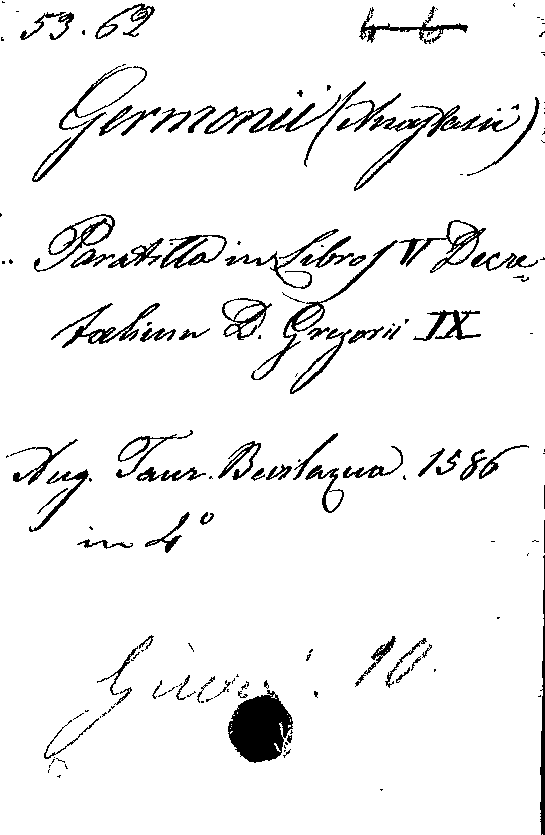 53.62 4 6
Germonii (Anastasii)
Paratitla in Libros V Decre=
talium D. Gregorii IX
Aug. Taur. Bevilaqua. 1586
in 4°
10.